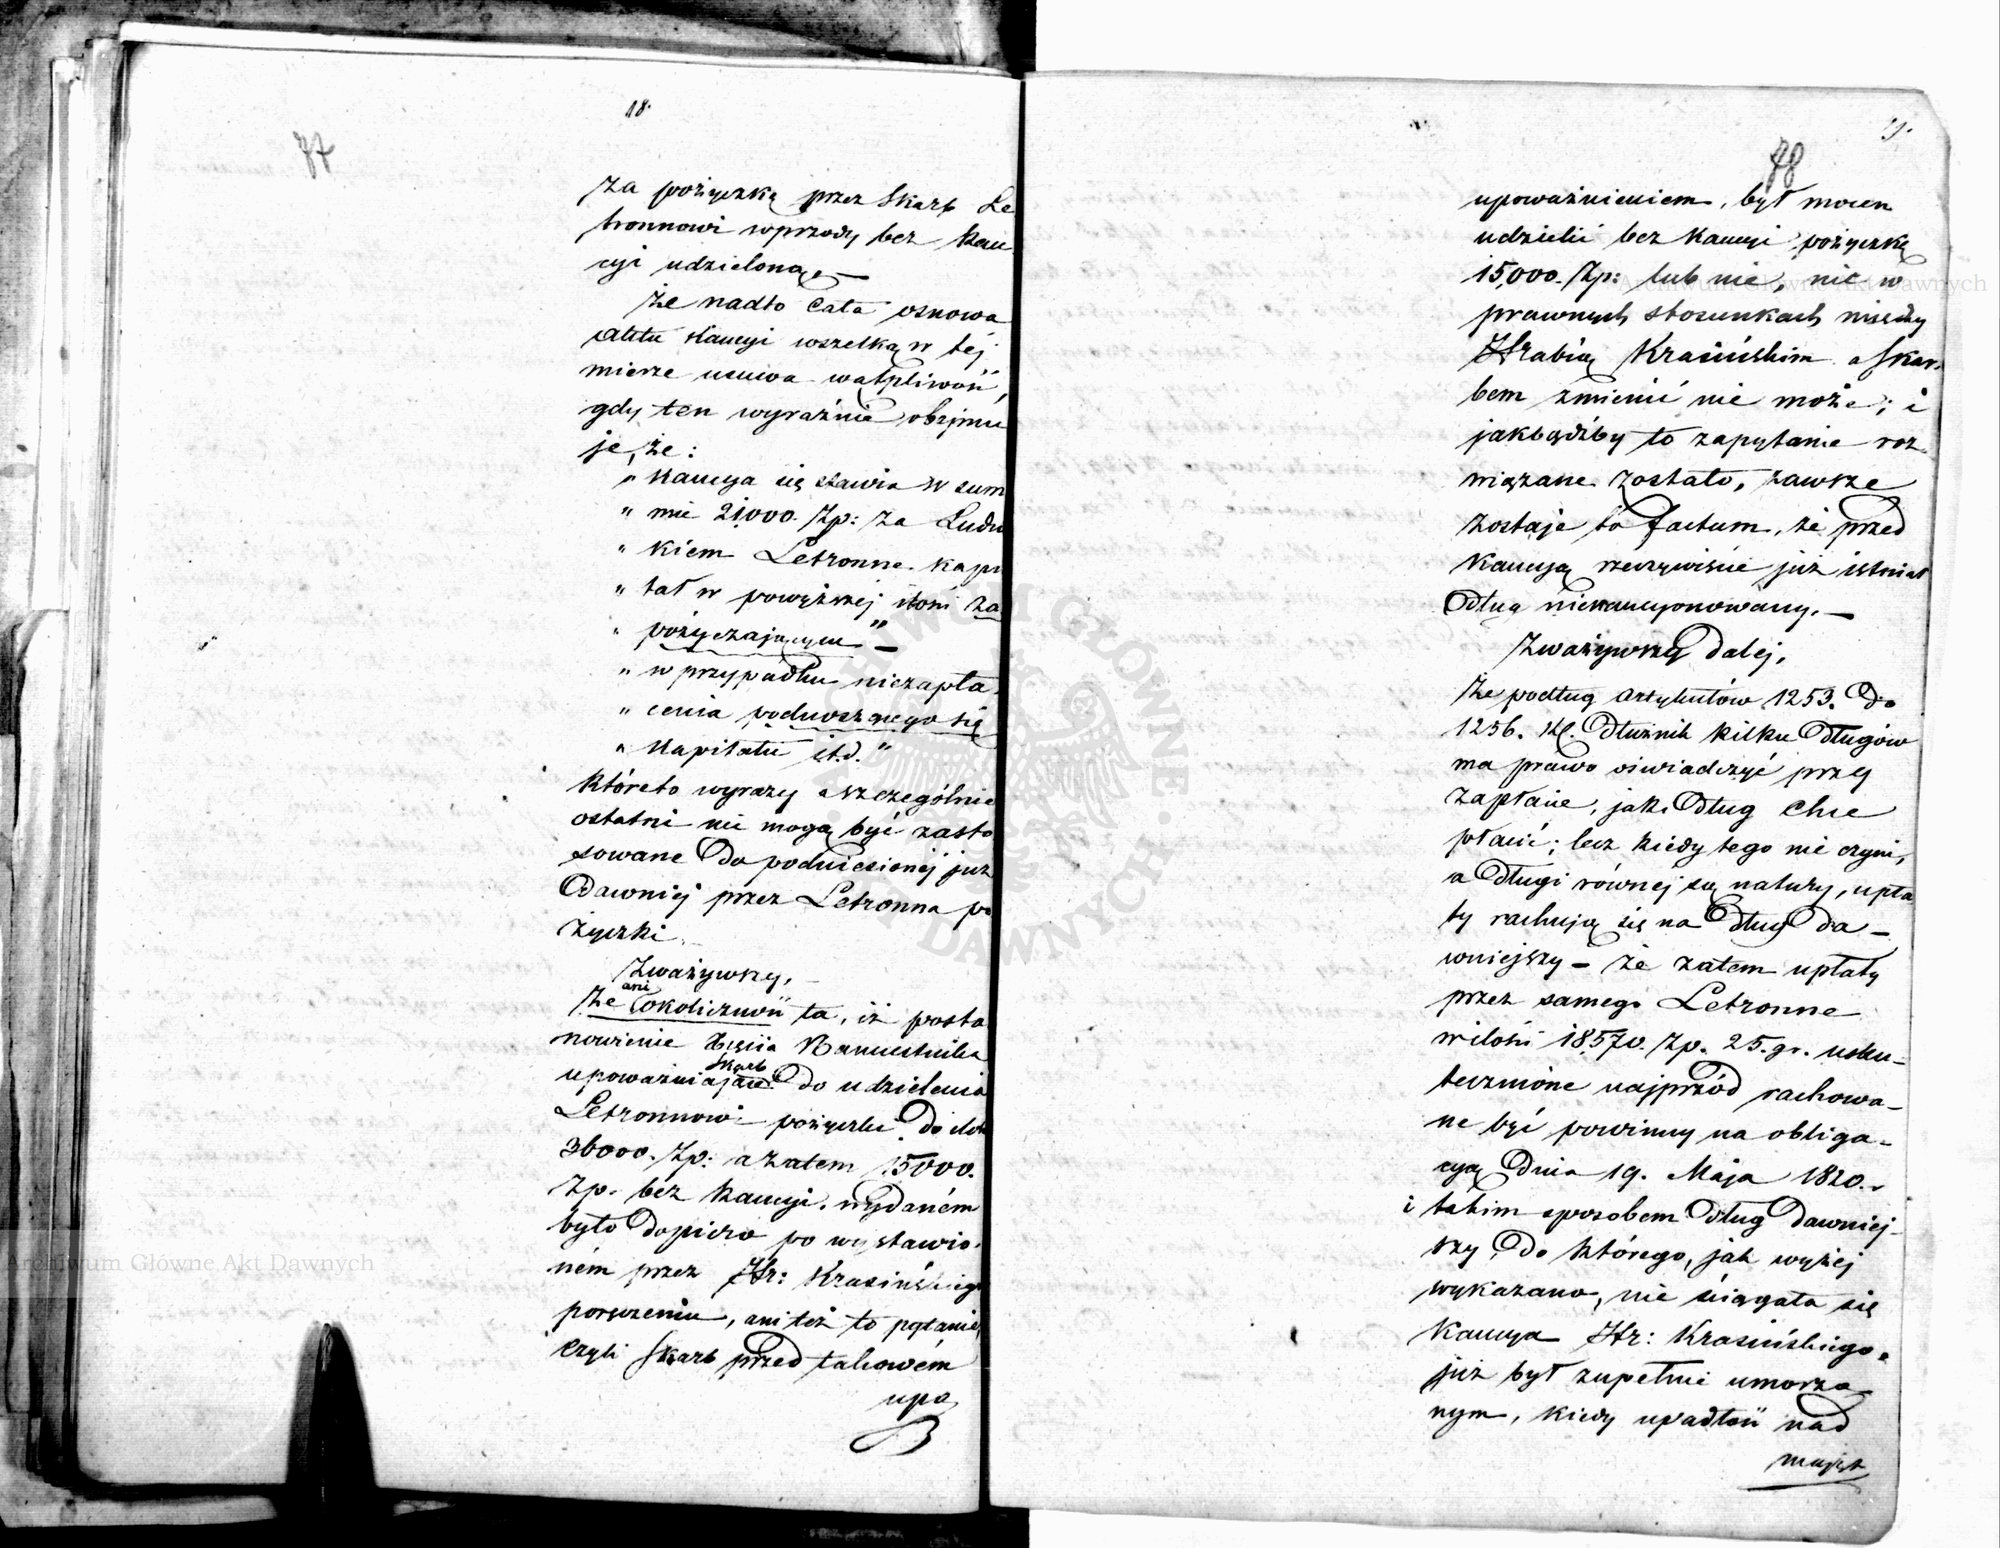 18.
77
za pożyczkę przez Skarb Le
tronnowi wprzódy bez kau
cyi udzieloną. —
Że nadto cała osnowa
Aktu Kaucyi wszelką w tej
mierze usuwa wątpliwość,
gdy ten wyraźnie obejmu
je, że:
„ Kaucya się stawia w sum
„ mie 21,000. Zp: za Ludwi
„ kiem Letronne kapi
„ tał w powyższej ilości za
„ pożyczającym” —
„ w przypadku niezapła
„ cenia podnoszącego się
„ Kapitału it.d.”
któreto wyrazy a szczególnie
ostatni nie mogą być zasto
sowane do podniesionej już
dawniej przez Letronna po
życzki. —
Zważywszy,
Że ani okoliczność ta, iż posta
nowienie Xięcia Namiestnika
upoważniające Skarb do udzielenia
Letronnowi pożyczki do
36000. Zp: a zatem 15000.
Zp. bez kaucyi, wydaném
było dopiéro po wystawio
ném przez Hr: Krasińskiego
poręczeniu, ani też to pytanie,
czyli Skarb przed takowém
upo
19.
78
upoważnieniem, był mocen
udzielić bez Kaucyi pożyczkę
15,000. Zp: lub nie, nic w
prawnych stosunkach między
Hrabią Krasińskim a Skar
bem zmienić nie może; i
jakbądźby to zapytanie roz
wiązane zostało, zawsze
zostaje to factum, że przed
Kaucyą rzeczywiście już istniał
dług niekaucyonowany. —
Zważywszy dalej,
Że podług artykułów 1253. do
1256. K. Dłużnik kilku długów
ma prawo oświadczyć przy
zapłacie, jaki dług chce
płacić; lecz kiedy tego nie czyni,
a długi równej są natury, upła
ty rachują się na dług da —
wniejszy — że zatem upłaty
przez samego Letronne
w ilości 18,570. Zp. 25. gr. usku —
tecznione najprzód rachowa —
ne być powinny na obliga —
cyą dnia 19. Maja 1820.
i takim sposobem dług dawniej —
szy, do którego, jak wyżej
wykazano, nie ściągała się
Kaucya Hr: Krasińskiego,
już był zupełnie umorzo
nym, kiedy upadłość nad
mająt
Archiwum Główne Akt Dawnych
Archiwum Główne Akt Dawnych
ARCHIWUM GŁÓWNE AKT DAWNYCH